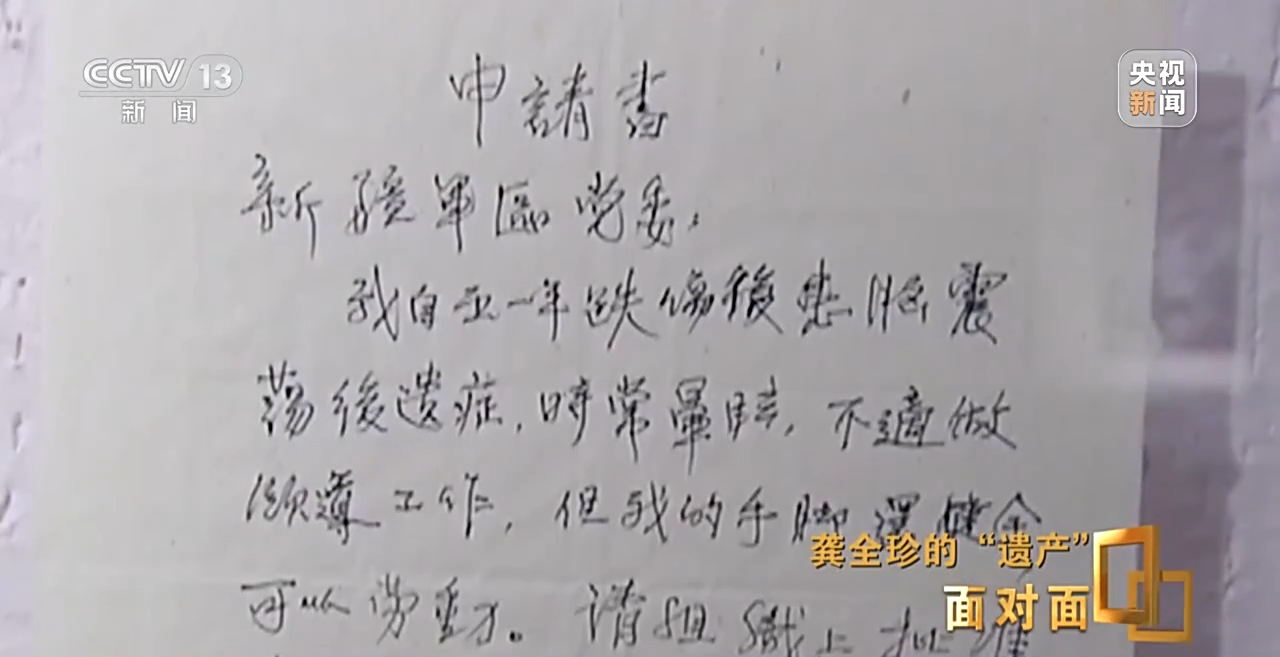 CCTV 13
新闻
央视
新闻
申請書
新疆軍區党委：
我自五一年跌傷後患脑震
荡後遗症，時常暈眩，不適做
領導工作，但我的手脚還健全
可以劳動。请組織上批准
龚全珍的“遗产”
面对面